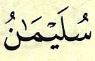 سُلَيْمَٰنُ